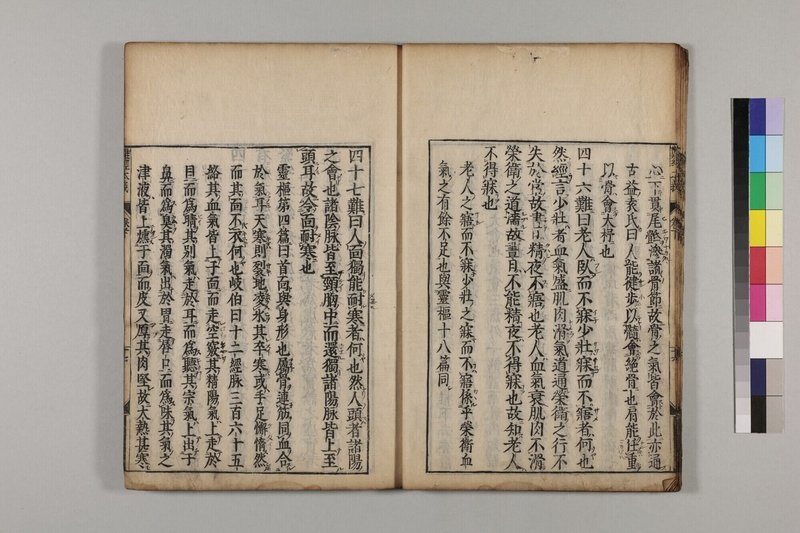 心下貫尾骶滲諸骨節故骨之氣皆會於此亦通
古益袁氏曰人能徤步以髓會絶骨也肩能任重
以骨會大杼也
四十六難曰老人臥而不寐少壯寐而不寤者何也
然經言少壯者血氣盛肌肉滑氣道通榮衛之行不
失於常故晝日精夜不寤也老人血氣衰肌肉不滑
榮衛之道濇故晝日不能精夜不得寐也故知老人
不得寐也
老人之寤而不寐少壯之寐而不寤係乎榮衛血
氣之有餘不足也與靈樞十八篇同
四十七難曰人面獨能耐寒者何也然人頭者諸陽
之會也諸陰脉皆至頸胸中而還獨諸陽脉皆上至
頭耳故令面耐寒也
靈樞第四篇曰首面與身形也屬骨連筋同血合
於氣耳天寒則裂地凌氷其卒寒或手足懈惰然
而其面不衣何也岐伯曰十二經脉三百六十五
絡其血氣皆上于面而走空竅其精陽氣上走於
目而為睛其別氣走於耳而為聽其宗氣上出于
鼻而為臭其濁氣出於胃走唇口而為味其氣之
津液皆上燻于面而皮又厚其肉堅故大熱甚寒